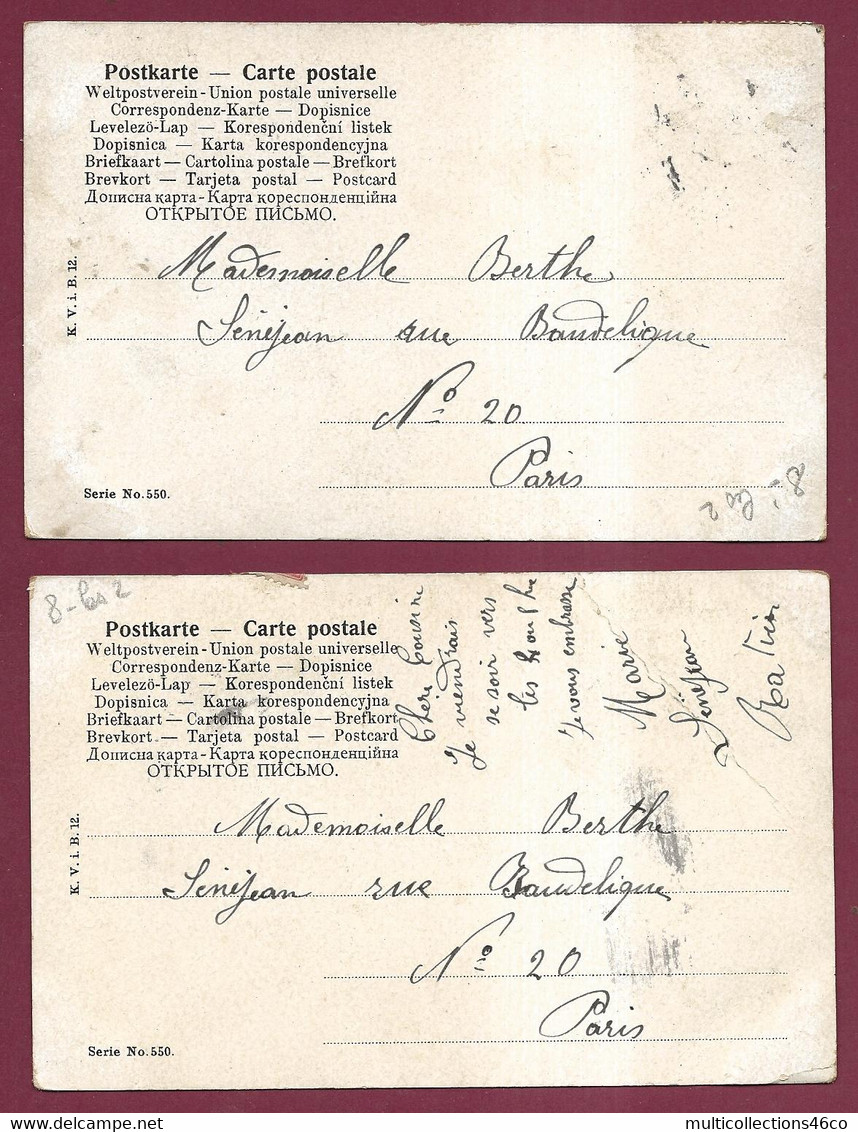 Postkarte — Carte postale
Weltpostverein - Union postale universelle
Correspondenz-Karte — Dopisnice
Levelezö-Lap — Korespondenční listek
Dopisnica — Karta korespondencyjna
Briefkaart — Cartolina postale — Brefkort
Brevkort — Tarjeta postal — Postcard
Дописна карта - Карта кореспонденційна
ОТКРЫТОЕ ПИСЬМО.
K. V. i. B. 12.
Mademoiselle Berthe
Sénéjean rue Baudelique
No 20
Paris
Serie No. 550.
8-
8-
Postkarte — Carte postale
Weltpostverein - Union postale universelle
Correspondenz-Karte — Dopisnice
Levelezö-Lap — Korespondenční listek
Dopisnica — Karta korespondencyjna
Briefkaart — Cartolina postale — Brefkort
Brevkort — Tarjeta postal — Postcard
Дописна карта - Карта кореспонденційна
ОТКРЫТОЕ ПИСЬМО.
Chère Cousine
Je viendrais
se soir vers
les
Je vous embrasse
Marie
Sénéjean
K. V. i. B. 12.
Mademoiselle Berthe
Sénéjean rue Baudelique
No 20
Paris
Serie No. 550.
multicollections46co